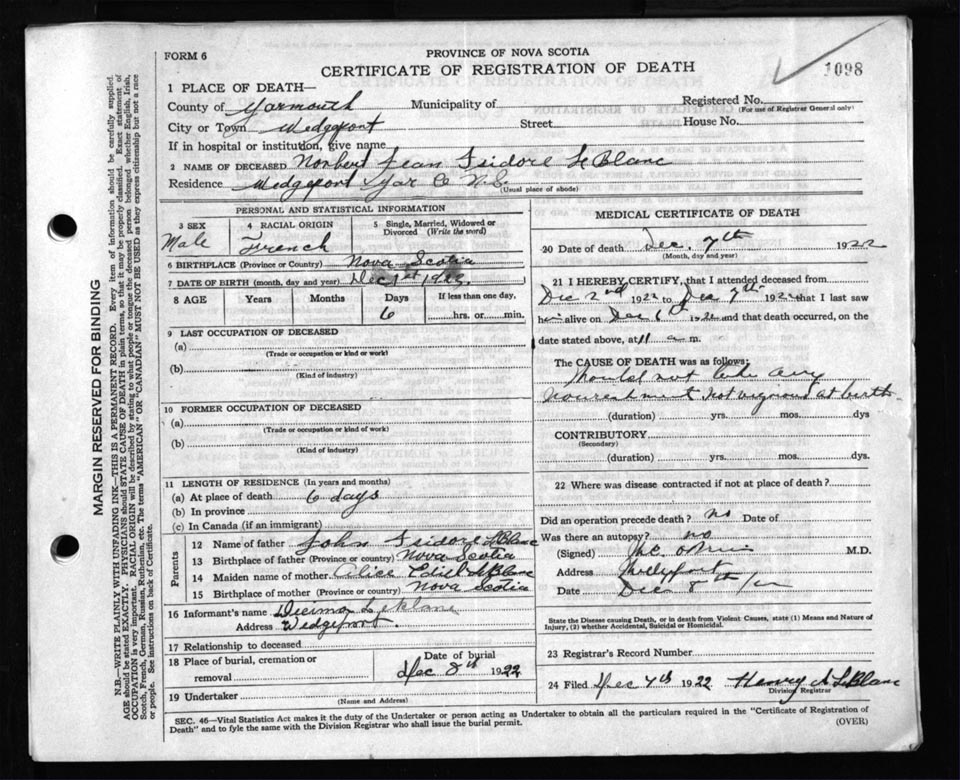 FORM 6
PROVINCE OF NOVA SCOTIA
CERTIFICATE OF REGISTRATION OF DEATH
1098
1 PLACE OF DEATH—
County of Yarmouth Municipality of Registered No.
(For use of Registrar General only)
City or Town Wedgeport Street House No.
If in hospital or institution, give name
2 NAME OF DECEASED Norbert Jean Isidore LeBlanc
Residence Wedgeport Yar Co N.S.
(Usual place of abode)
MARGIN RESERVED FOR BINDING
N.B.—WRITE PLAINLY WITH UNFADING INK—THIS IS A PERMANENT RECORD. Every item of information should be carefully supplied.
AGE should be stated EXACTLY. PHYSICIANS should STATE CAUSE OF DEATH in plain terms, so that it may be properly classified. Exact statement of
OCCUPATION is very important. RACIAL ORIGIN will be described by stating to what people or tongue the deceased person belonged whether English, Irish,
Scotch, French, German, Russian, Ruthenian, etc. The terms "AMERICAN" OR "CANADIAN" MUST NOT BE USED as they express citizenship but not a race
or people. See instructions on back of Certificate.
PERSONAL AND STATISTICAL INFORMATION
3 SEX 4 RACIAL ORIGIN 5 Single, Married, Widowed or
Divorced (Write the word)
Male French
6 BIRTHPLACE (Province or Country) Nova Scotia
7 DATE OF BIRTH (month, day and year) Dec 1st 1922
8 AGE Years Months Days If less than one day,
6 hrs. or min.
9 LAST OCCUPATION OF DECEASED
(a)
(Trade or occupation or kind or work)
(b)
(Kind of industry)
10 FORMER OCCUPATION OF DECEASED
(a)
(Trade or occupation or kind of work)
(b)
(Kind of industry)
11 LENGTH OF RESIDENCE (In years and months)
(a) At place of death 6 days
(b) In province
(c) In Canada (if an immigrant)
Parents
12 Name of father John Isidore LeBlanc
13 Birthplace of father (Province or country) Nova Scotia
14 Maiden name of mother Alice LeBlanc
15 Birthplace of mother (Province or country) Nova Scotia
16 Informant's name Decima LeBlanc
Address Wedgeport.
17 Relationship to deceased
18 Place of burial, cremation or
removal
Date of burial
Dec 8th 1922
19 Undertaker
(Name and Address)
MEDICAL CERTIFICATE OF DEATH
20 Date of death Dec. 7th 1922
(Month, day and year)
21 I HEREBY CERTIFY, that I attended deceased from
Dec 2nd 1922 to Dec 7th 1922 that I last saw
him alive on Dec 6th 1922 and that death occurred, on the
date stated above, at 11 a m.
The CAUSE OF DEATH was as follows:
Would not take any
nourishment not vigorous at birth
(duration) yrs. mos. dys
CONTRIBUTORY
(Secondary)
(duration) yrs. mos. dys.
22 Where was disease contracted if not at place of death?
Did an operation precede death? no Date of
Was there an autopsy? no
(Signed) M.D.
Address
Date Dec 8th/22
State the Disease causing Death, or in death from Violent Causes, state (1) Means and Nature of
Injury, (2) whether Accidental, Suicidal or Homicidal.
23 Registrar's Record Number
24 Filed Dec 7th 1922 Henry A LeBlanc
Division Registrar
SEC. 46—Vital Statistics Act makes it the duty of the Undertaker or person acting as Undertaker to obtain all the particulars required in the "Certificate of Registration of
Death" and to fyle the same with the Division Registrar who shall issue the burial permit.
(OVER)